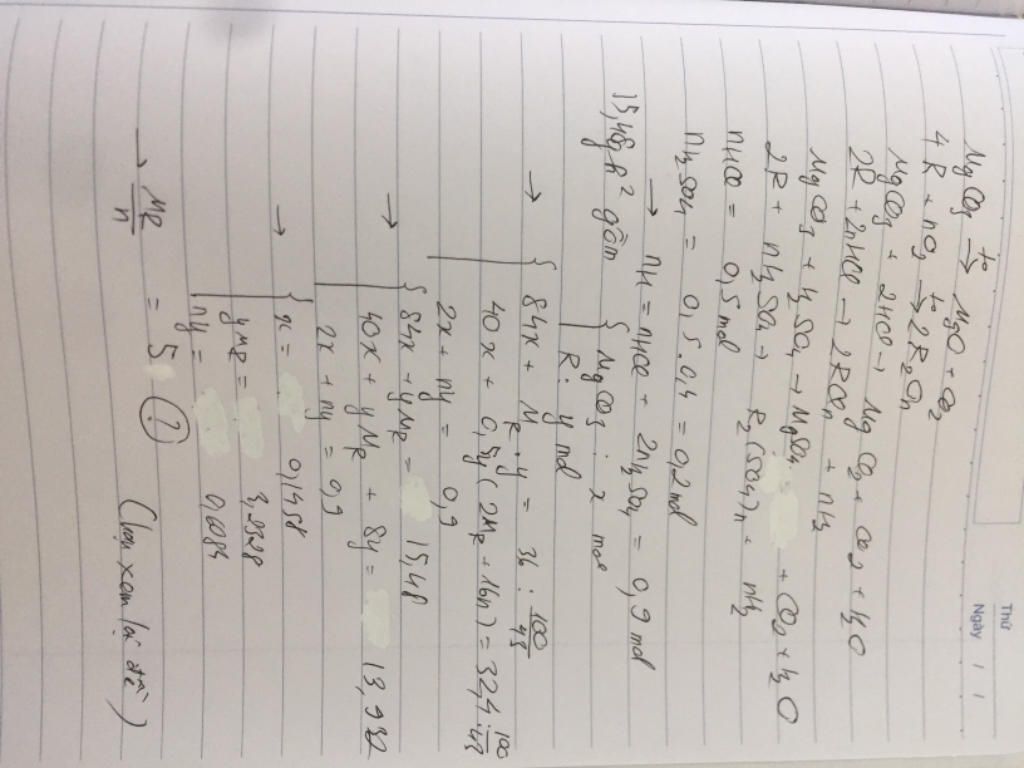 Thứ
Ngày / /
MgCO3 t° → MgO + CO2
4R + nO2 t° → 2R2On
MgCO3 + 2HCl → MgCl2 + CO2 + H2O
2R + 2nHCl → 2RCln + nH2
MgCO3 + H2SO4 → MgSO4 + CO2 + H2O
2R + nH2SO4 → R2(SO4)n + nH2
nHCl = 0,5 mol
nH2SO4 = 0,5.0,4 = 0,2 mol
→ nH = nHCl + 2nH2SO4 = 0,9 mol
15,48g h² gồm { MgCO3: x mol
R: y mol
→ { 84x + MR.y = 36 : 100/43
40x + 0,5y(2MR + 16n) = 32,4 : 100/43
2x + ny = 0,9
→ { 84x + yMR = 15,48
40x + yMR + 8y = 13,932
2x + ny = 0,9
→ { x = 0,1458
yMR =
ny = 0,6084
→ MR/n = 5 (?)
(bạn xem lại đề)